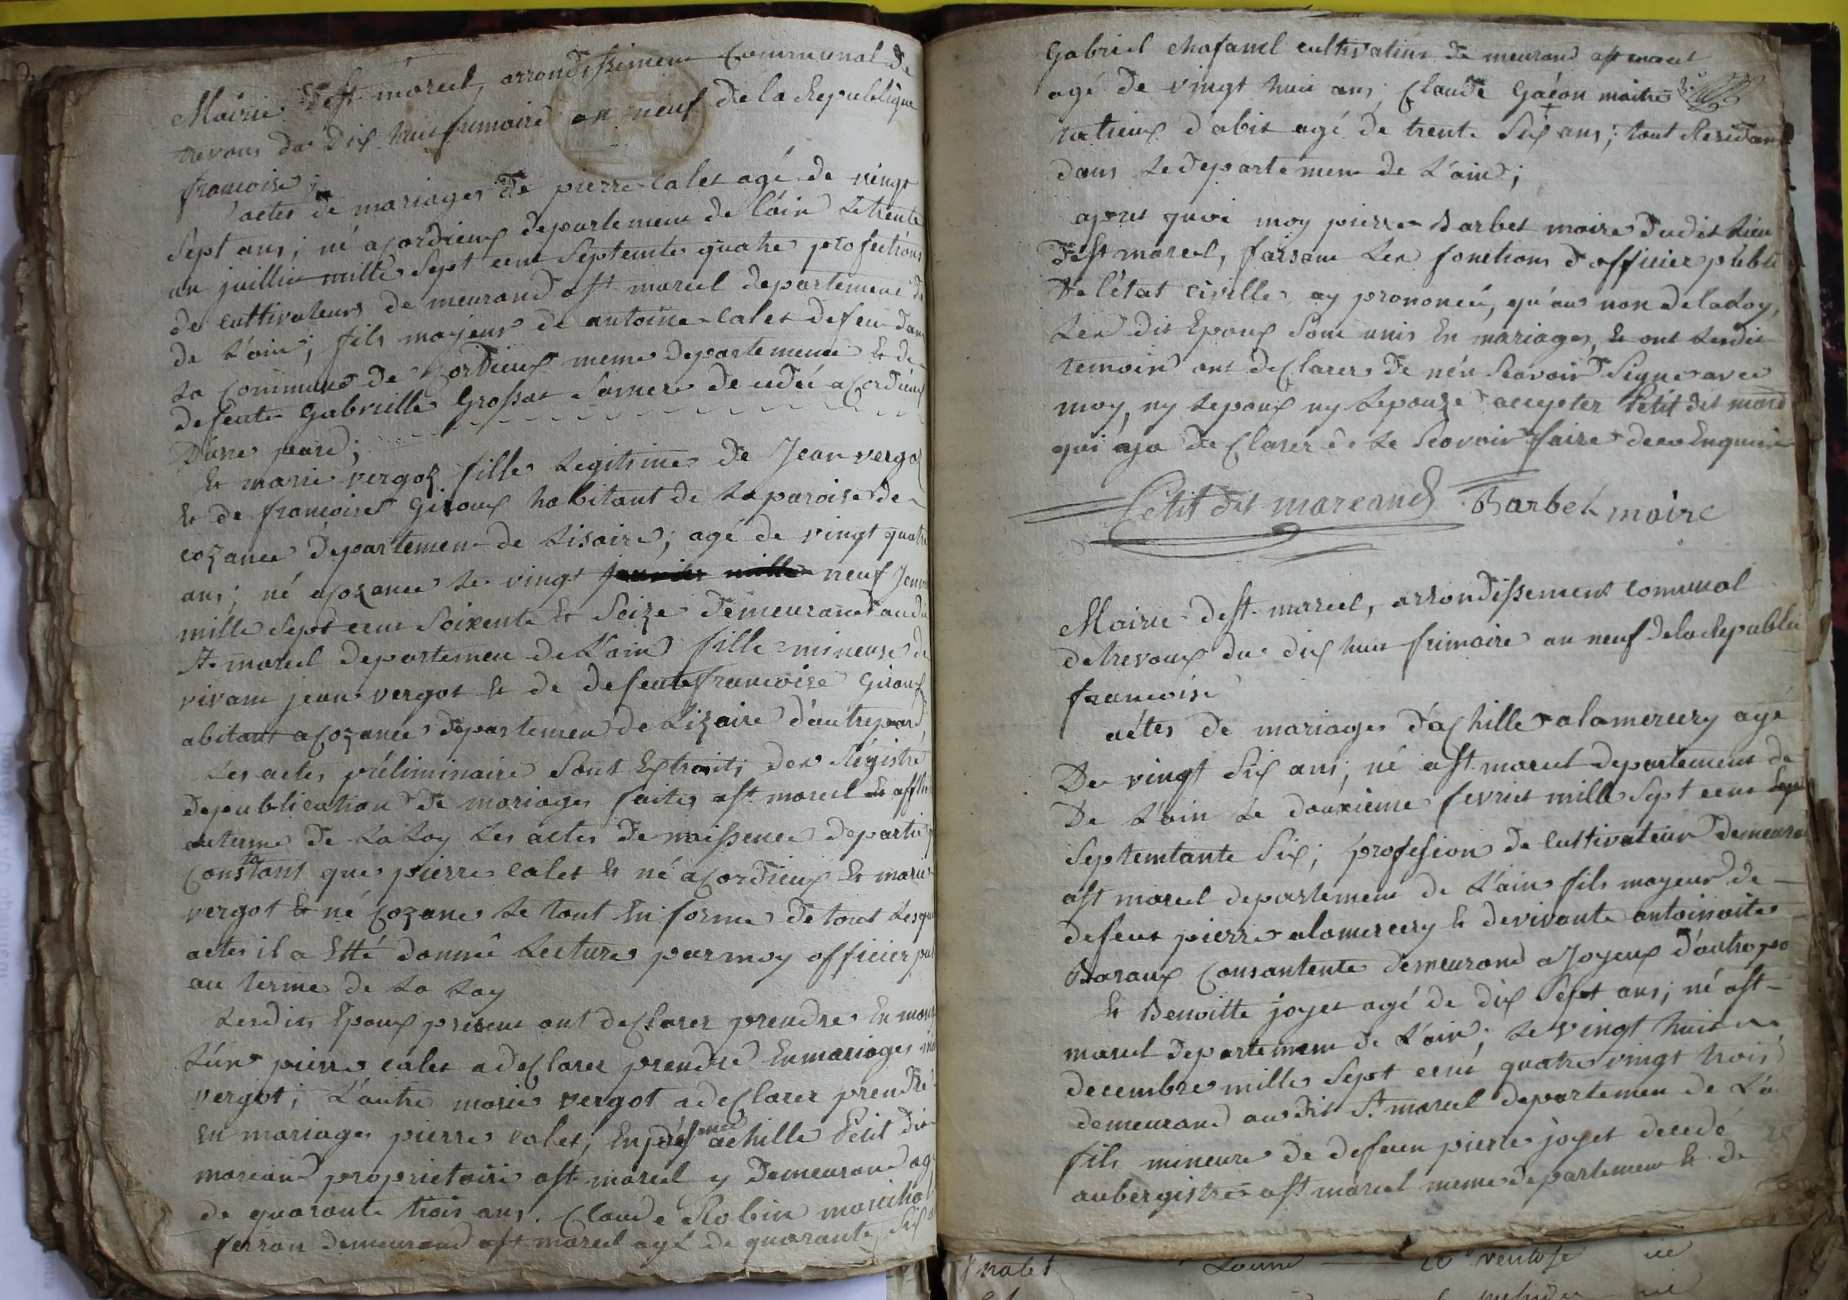 Mairie de st marcel, arrondissement Communal de
trevoux du dix huit frimaire an neuf de la Republique
francoise;
actes de mariages de pierre calet agé de vingt
sept ans; né a cordieux departement de l'ain le trente
un juillet mille sept cent septente quatre profections
de cultivateur de meurand a st marcel departement de
de L'ain; fils majeur de antoine calet defeu dans
La commune de Cordieux meme departement et de
defeute Gabrielle Grossat Samere decedée a Cordieux
D'une pard;
Et marie vergot fille Legitime de Jean vergot
Et de francoise Giroux habitant de La paroise de
cozance departement de Lisaire; agé de vingt quatre
ans; né a Cozance Le vingt neuf Janvi
mille Sept cent Soixente Et Seize demeurand au dit
St marcel departement de L'ain fille mineure de
vivant jean vergot Et de defeute francoise Giroux
abitant a Cozance departement de Lizaire d'autre pard
Les actes préliminaire Sont Extraits des Régistre
de publication de mariages faites a st marcel et affiche
au terme de La Loy Les actes de naissence departie
Constatant que pierre calet Et né a Cordieux Et marie
vergot Et né Cozance Le tout En forme de tout Lesquel
actes il a Etté donné Lecture par moy officier pub
au terme de La Loy
Lesdits Epoux présent ont declarer prendre En mari
L'un pierre calet a declarer prendre En mariages marie
vergot; L'autre marie vergot a declarer prendre
En mariages pierre calet; En présence achille Petit dit
marcand proprietaire a st marcel y demeurand agé
de quarante trois ans. Claude Robin marichal
ferran demeurand a st marcel agé de quarante Six
Gabriel Chafanel cultivateur de meurand a st marcel
agé de vingt huit ans; Claude Gacon maitre
tailieux d'abit agé de trente Six ans; tout Residant
dans Le departement de L'ain;
apres quoi moy pierre Barbet maire dudit Lieu
De st marcel, faisant Les fonctions d'officier public
De l'état civille, ay prononcé, qu'au non de la Loy,
Les dit Epoux Sont unis En mariages, Et ont Lesdit
temoin ont declarer de n'en Scavoir Signe avec
moy, ny Lepoux ny Lepouze accepter Petit dit marcand
qui aja declarer de Le Scavoir faire de ce Enquerie
Petit dit marcand Barbet maire
Mairie de st marcel, arrondissement comunal
de trevoux du dix huit frimaire an neuf de la Republi
francoise
actes de mariages d'achille alamercery agé
De vingt Six ans; né a st marcel departement de
De L'ain Le douxieme fevrier mille Sept cent Sept
Septemtante Six; profesion de cultivateur demeurand
a st marcel departement de L'ain fils mayeur de
defeut pierre alamercery Et de vivante antoinaite
Baraux Consantente demeurand a Joyeux d'autre pa
Et Benoitte joyet agé de dix Sept ans; né a st
marcel departement de L'ain; Le vingt huit
decembre mille Sept cent quatre vingt trois
demeurand au dit St marcel departemen de L'a
fils mineure de defeu pierre joyet decedé
aubergistre a st marcel meme departement Et de
ventose